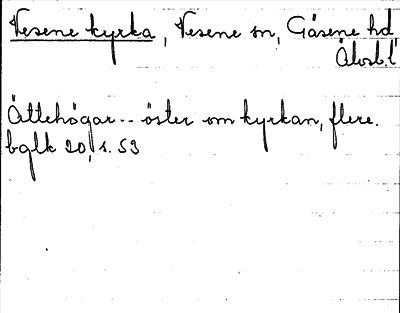 Vesene kyrka, Vesene sn, Gäsene hd
Älvsb.l
Ättehögar -- öster om kyrkan, flere.
bglk 20, s. 53